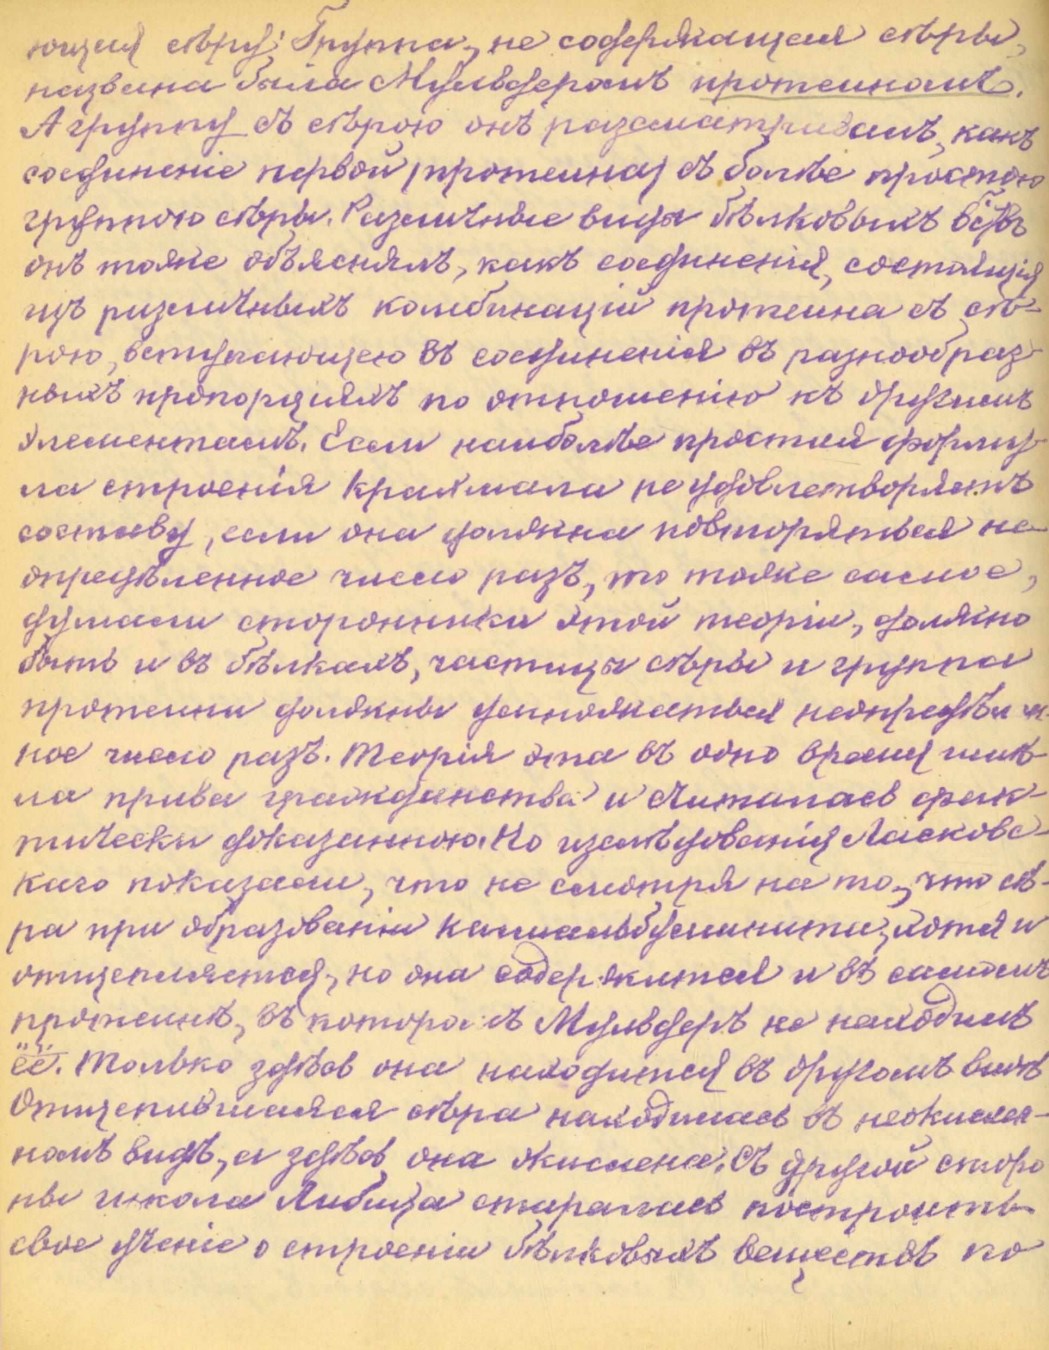 ющия сѣру; Группа, не содержащая сѣры,
названа была Мульдеромъ протеиномъ.
А группу съ сѣрою онъ разсматривалъ, какъ
соединеніе первой (протеина) съ болѣе простою
группою сѣры. Различные виды бѣлковыхъ
онъ тоже объяснялъ, какъ соединенія, состоящія
изъ различныхъ комбинацій протеина съ сѣ-
рою, вступающею въ соединенія въ разнообраз-
ныхъ пропорціяхъ по отношенію къ другимъ
элементамъ. Если наиболѣе простая форму-
ла строенія крахмала не удовлетворяетъ
составу, если она должна повторяться не-
опредѣленное число разъ, то тоже самое,
думали сторонники этой теоріи, должно
быть и въ бѣлкахъ, частицы сѣры и группа
протеина должны умножаться неопредѣлен-
ное число разъ. Теорія эта въ одно время имѣ-
ла права гражданства и считалась фак-
тически доказанною. Но изслѣдованія Ласковс-
каго показали, что не смотря на то, что сѣ-
ра при образованіи хотя и
отщепляется, но она содержится и въ самомъ
протеинѣ, въ которомъ Мульдеръ не находилъ
её. Только здѣсь она находится въ другомъ видѣ
Отщепившаяся сѣра находилась въ неокислен-
номъ видѣ, а здѣсь она окислена. Съ другой сторо
ны школа Либиха старалась построить
свое ученіе о строеніи бѣлковыхъ веществъ по